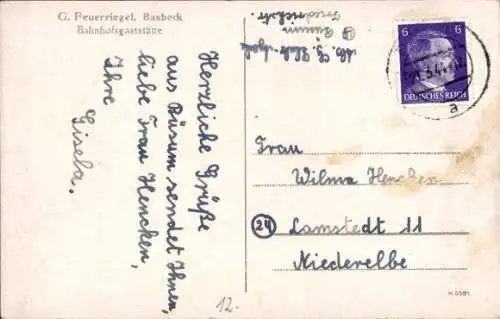 G. Feuerriegel, Basbeck
Bahnhofsgaststätte
Herzliche Grüße
aus Büsum sendet Ihnen,
liebe Frau Hencken,
Ihre
Gisela.
Büsum
6 6
DEUTSCHES REICH
a
Frau
Wilma Hencken
24 Lamstedt 11
Niederelbe
12.